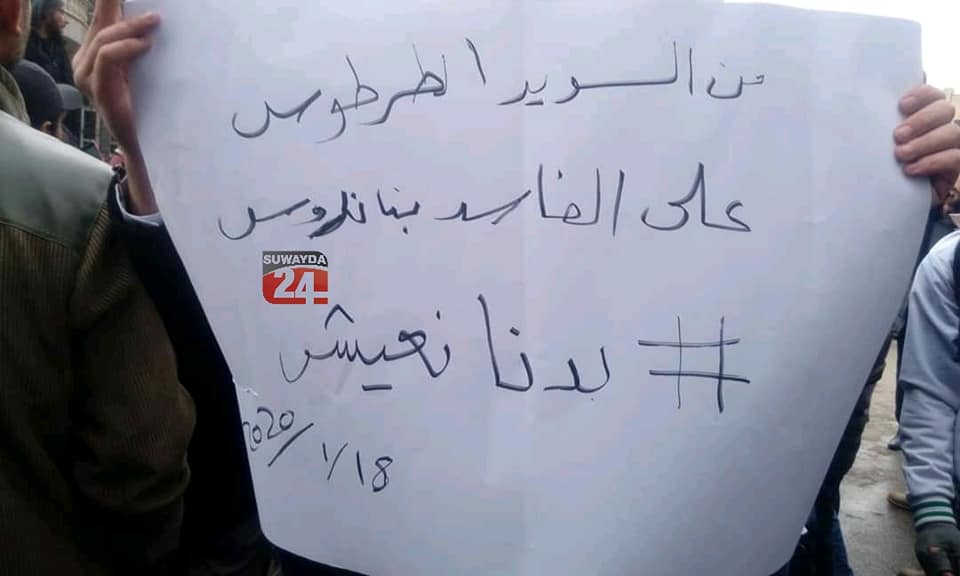 من السويدا لطرطوس
على الفاسد بنا ندوس
SUWAYDA
24
# بدنا نعيش
2020/1/18